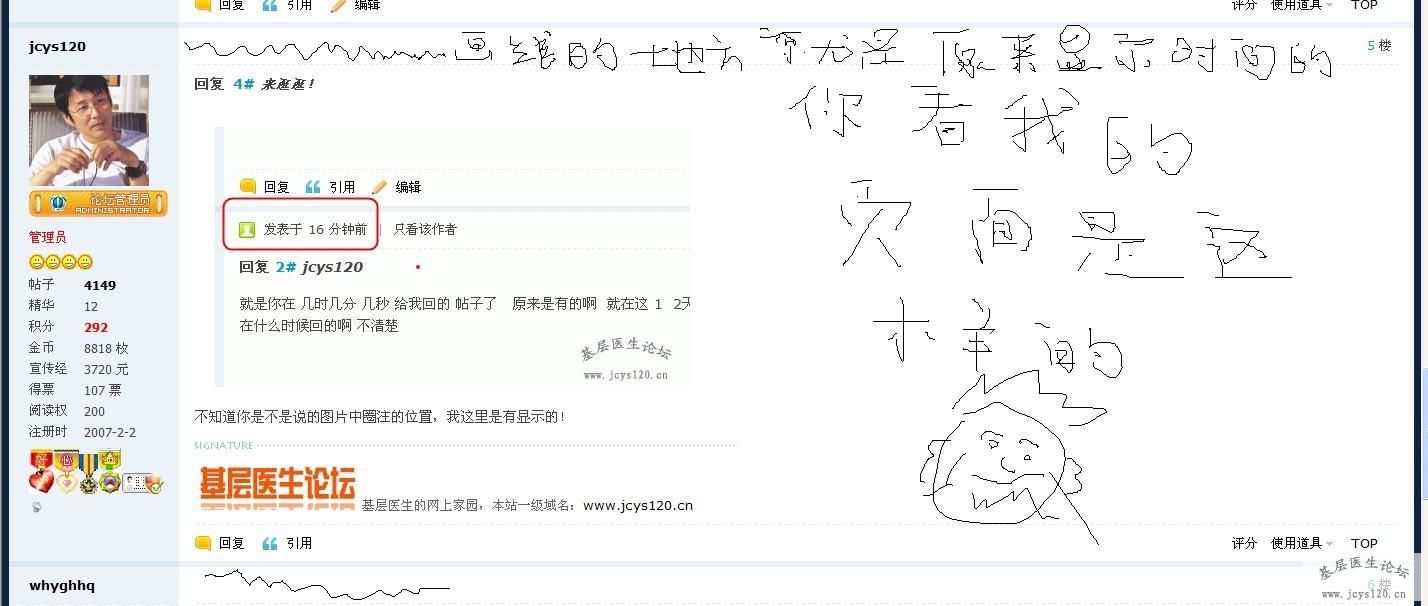 回复 引用 编辑 评分 使用道具 TOP
jcys120 画线的地方 就是 原来显示时间的 5 楼
回复 4# 来逛逛！
你看我的
论坛管理员
ADMINISTRATOR
回复 引用 编辑
页面是这
发表于 16 分钟前 | 只看该作者
管理员
回复 2# jcys120
帖子 4149
就是你在 几时几分 几秒 给我回的 帖子了 原来是有的啊 就在这 1 2天
精华 12
在什么时候回的啊 不清楚
积分 292
木羊的
金币 8818 枚
基层医生论坛
宣传经 3720 元
www.jcys120.cn
得票 107 票
阅读权 200
不知道你是不是说的图片中圈注的位置，我这里是有显示的！
注册时 2007-2-2
SIGNATURE
基层医生论坛 基层医生的网上家园，本站一级域名：www.jcys120.cn
回复 引用 评分 使用道具 TOP
whyghhq 6 楼
基层医生论坛
www.jcys120.cn